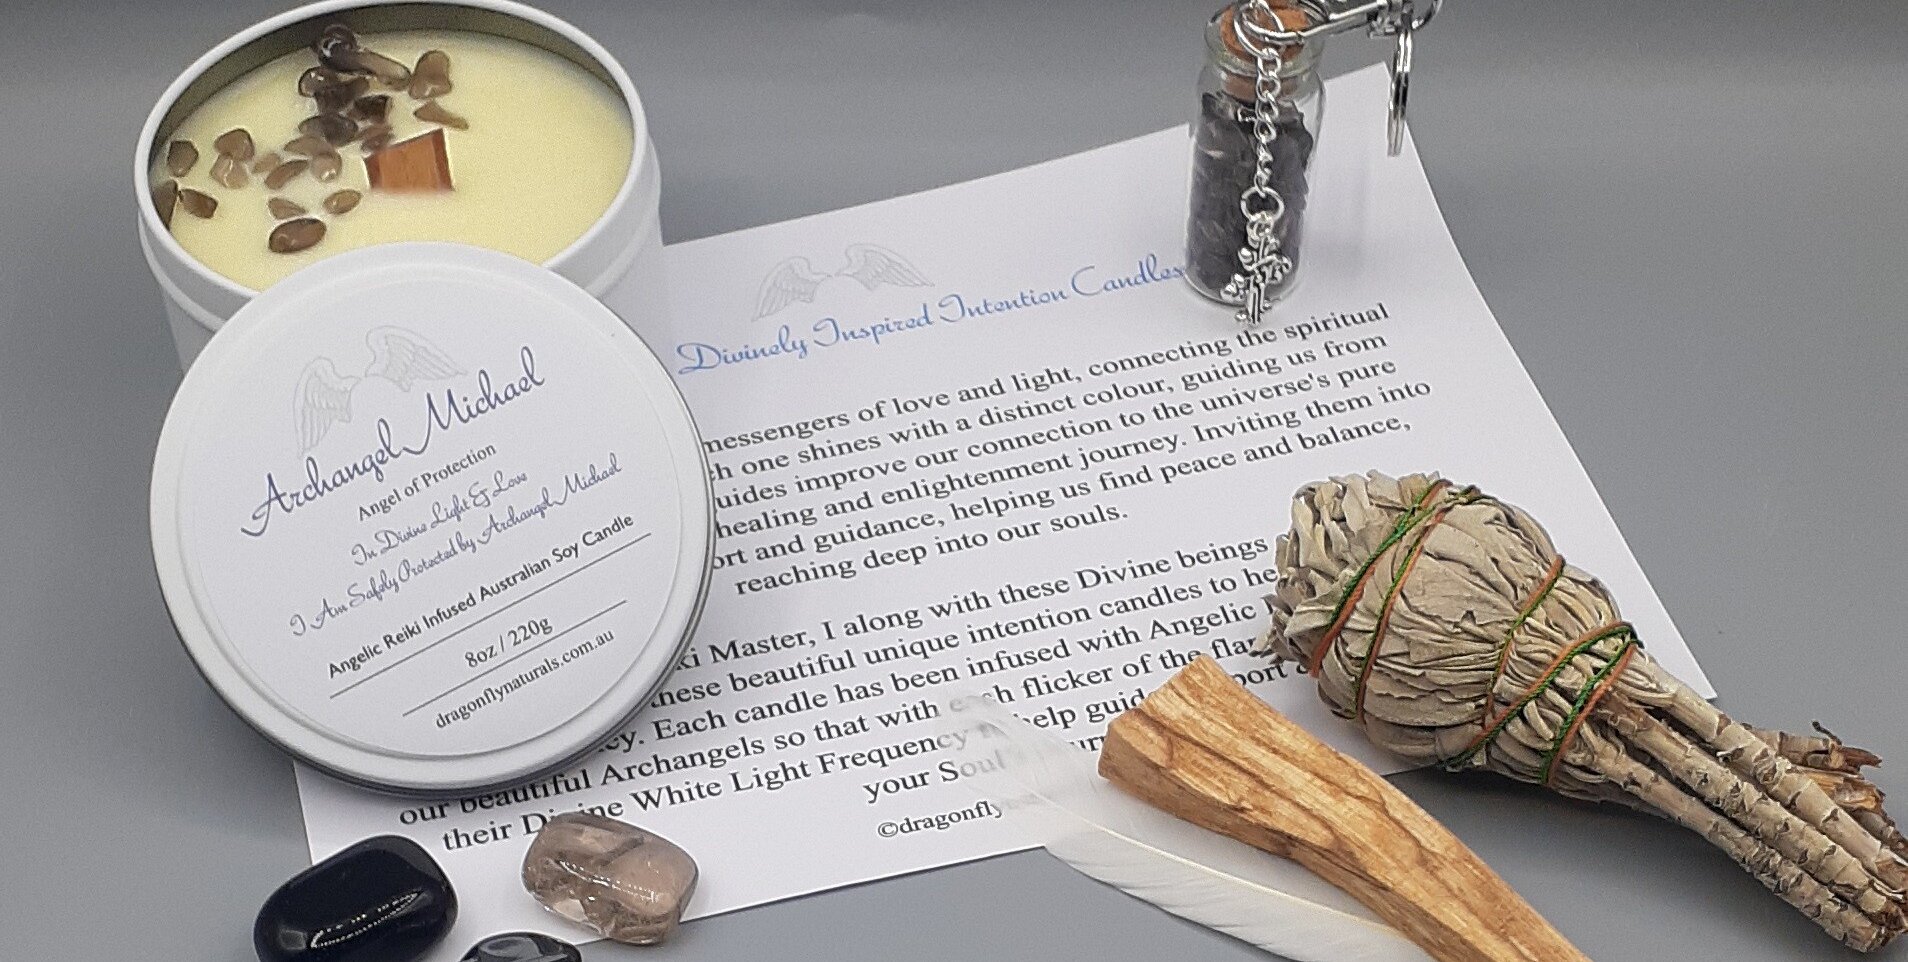 Archangel Michael
Angel of Protection
In Divine Light & Love
I Am Safely Protected by Archangel Michael
Angelic Reiki Infused Australian Soy Candle
8oz / 220g
dragonflynaturals.com.au
Divinely Inspired Intention Candles
messengers of love and light, connecting the spiritual
one shines with a distinct colour, guiding us from
improve our connection to the universe's pure
healing and enlightenment journey. Inviting them into
and guidance, helping us find peace and balance,
reaching deep into our souls.
Master, I along with these Divine beings
these beautiful unique intention candles to
Each candle has been infused with Angelic
our beautiful Archangels so that with flicker of the
their Divine White Light Frequency help
your Soul
©dragonfly